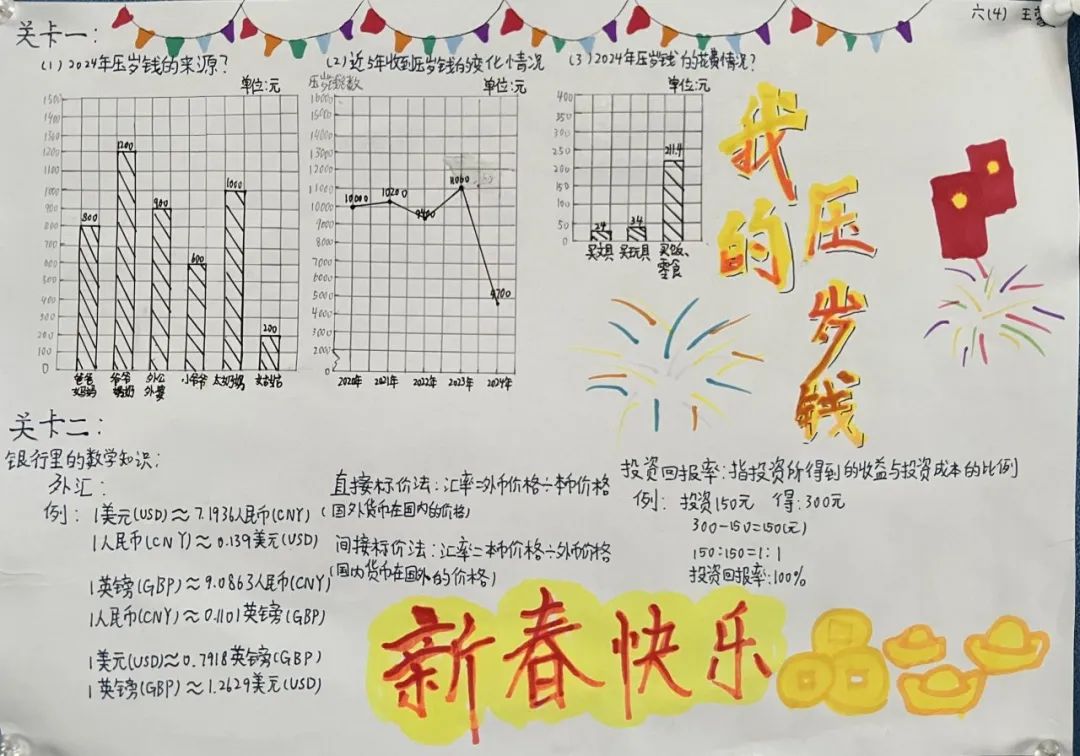 六(4) 王
关卡一:
(1) 2024年压岁钱的来源?
单位:元
1500
1400
1300
1200
1100
1000
900
800
700
600
500
400
300
200
100
0
800
1200
900
600
1000
200
爸爸妈妈
爷爷奶奶
外公外婆
小爷爷
太奶奶
(2) 近5年收到压岁钱的变化情况
压岁钱数
单位:元
16000
15000
14000
13000
12000
11000
10000
9000
8000
7000
6000
5000
4000
3000
2000
0
10000
10200
9400
11000
4700
2020年
2021年
2022年
2023年
2024年
(3) 2024年压岁钱的花费情况?
单位:元
400
350
300
250
200
150
100
50
0
24
34
211.4
买文具
买玩具
买饭、零食
我的压岁钱
关卡二:
银行里的数学知识:
外汇:
例: 1美元(USD)≈7.1936人民币(CNY)
1人民币(CNY)≈0.139美元(USD)
1英镑(GBP)≈9.0863人民币(CNY)
1人民币(CNY)≈0.1101英镑(GBP)
1美元(USD)≈0.7918英镑(GBP)
1英镑(GBP)≈1.2629美元(USD)
直接标价法:汇率=外币价格÷本币价格
(国外货币在国内的价格)
间接标价法:汇率=本币价格÷外币价格
(国内货币在国外的价格)
投资回报率:指投资所得到的收益与投资成本的比例
例: 投资150元 得:300元
300-150=150(元)
150:150=1:1
投资回报率:100%
新春快乐